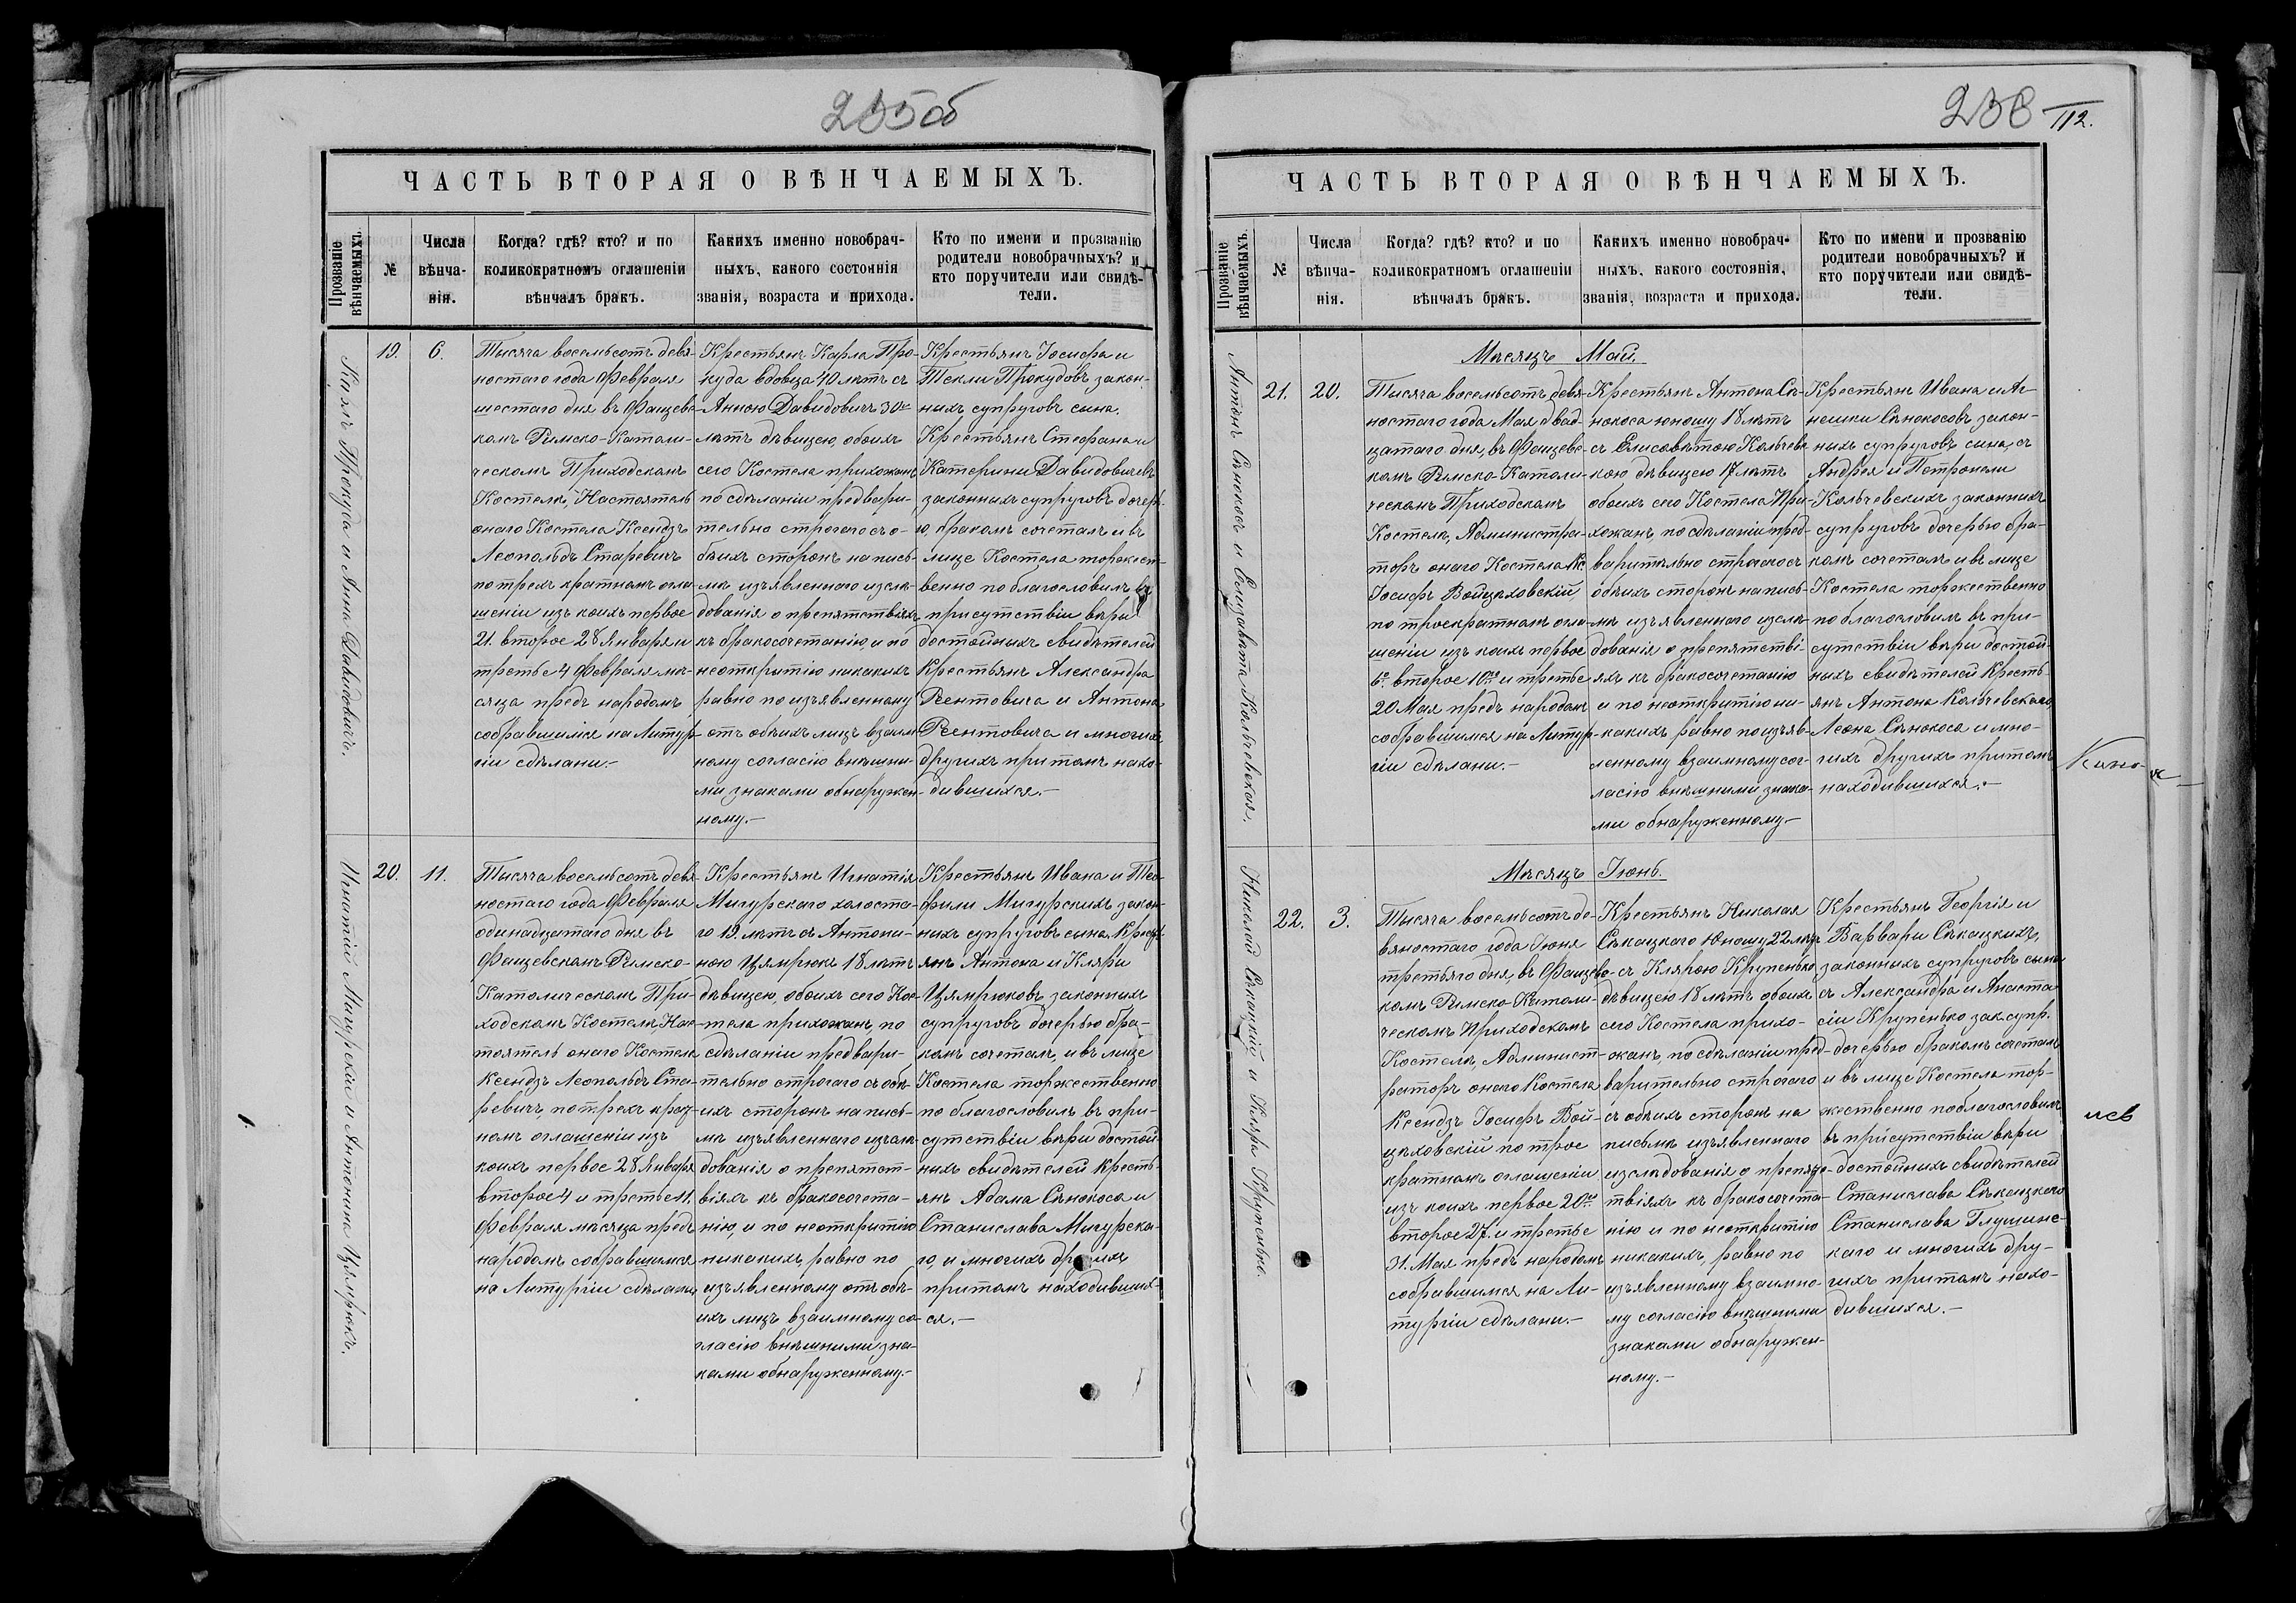 235об
ЧАСТЬ ВТОРАЯ О ВѢНЧАЕМЫХЪ.
Прозваніе вѣнчаемыхъ.
№
Числа вѣнча-
нія.
Когда? гдѣ? кто? и по
коликократномъ оглашеніи
вѣнчалъ бракъ.
Какихъ именно новобрач-
ныхъ, какого состоянія
званія, возраста и прихода.
Кто по имени и прозванію
родители новобрачныхъ? и
кто поручители или свидѣ-
тели.
Карлъ Прокуда и Анна Давидовичъ.
19.
6.
Тысяча восемьсотъ девя-
ностаго года Февраля
шестаго дня въ Фащевс-
комъ Римско-Католи-
ческомъ Приходскомъ
Костелѣ, Настоятель
онаго Костела Ксендзъ
Леопольдъ Старевичъ
по трехъ кратномъ огла-
шеніи изъ коихъ первое
21. второе 28 Января и
третье 4 Февраля мѣ-
сяца предъ народомъ
собравшимся на Литур-
гіи сдѣлани.-
Крестьянъ Карла Про-
куда вдовца 40 лѣтъ съ
Анною Давидовичъ 30и
лѣтъ дѣвицею, обоихъ
сего Костела прихожанъ
по сдѣланіи предвари-
тельно строгаго съ о-
боихъ сторонъ на пись-
мѣ изъявленного изслѣ-
дованія о препятствіяхъ
къ бракосочетанію, и по
неоткрытію никакихъ
равно по изъявленному
отъ обѣихъ лицъ взаим-
ному согласію внѣшни-
ми знаками обнаружен-
ному.-
Крестьянъ Іосифа и
Текли Прокудовъ закон-
ныхъ супруговъ сына.
Крестьянъ Стефана и
Катерины Давидовичевъ
законныхъ супруговъ дочерь-
ю, бракомъ сочеталъ и въ
лице Костела торжест-
венно поблагословилъ въ
присутствіи вѣри
достойныхъ свидѣтелей
Крестьянъ Александра
Рентовича и Антона
Рентовича и многихъ
другихъ притомъ нахо-
дившихся.-
Игнатій Мигурскій и Антонина Цямрюкъ.
20.
11.
Тысяча восемьсотъ девя-
ностаго года Февраля
одинадцатаго дня въ
Фащевскомъ Римско-
Католическомъ При-
ходскомъ Костелѣ, Нас-
тоятель онаго Костела
Ксендзъ Леопольдъ Ста-
ревичъ, по трехъ крат-
номъ оглашеніи изъ
коихъ первое 28 Января
второе 4 и третье 11.
Февраля мѣсяца предъ
народомъ собравшимся
на Литургіи сдѣлани,
Крестьянъ Игнатія
Мигурскаго холоста-
го 19. лѣтъ съ Антони-
ною Цямрюкъ 18 лѣтъ
дѣвицею, обоихъ сего Кос-
тела прихожанъ, по
сдѣланіи предвари-
тельно строгаго съ обѣ-
ихъ сторонъ на пись-
мѣ изъявленнаго изслѣ-
дованія о препятст-
віяхъ къ бракосочета-
нію, и по неоткрытію
никакихъ, равно по
изъявленному отъ обѣ-
ихъ лицъ взаимному со-
гласію внѣшними зна-
ками обнаруженному.-
Крестьянъ Ивана и Тео-
фили Мигурскихъ закон-
ныхъ супруговъ сына, Крест-
янъ Антона и Кляри
Цямрюковъ, законныхъ
супруговъ дочерью бра-
комъ сочеталъ, и въ лице
Костела торжественно
поблагословилъ въ при-
сутствіи вѣри достой-
ныхъ свидѣтелей Кресть-
янъ Адама Сѣнокоса и
Станислава Мигурска-
го, и многихъ другихъ
притомъ находивших-
ся.-
236
112.
ЧАСТЬ ВТОРАЯ О ВѢНЧАЕМЫХЪ.
Прозваніе вѣнчаемыхъ.
№
Числа вѣнча-
нія.
Когда? гдѣ? кто? и по
коликократномъ оглашеніи
вѣнчалъ бракъ.
Какихъ именно новобрач-
ныхъ, какого состоянія,
званія, возраста и прихода.
Кто по имени и прозванію
родители новобрачныхъ? и
кто поручители или свидѣ-
тели.
Антонъ Сѣнокосъ и Елизавета Кольчевская.
Мѣсяцъ Май.
21.
20.
Тысяча восемьсотъ девя-
ностаго года Мая двад-
цатаго дня, въ Фащевс-
комъ Римско-Католи-
ческомъ Приходскомъ
Костелѣ, Администра-
торъ онаго Костела Кс
Іосифъ Войцѣховскій
по троекратномъ огла-
шеніи изъ коихъ первое
6е второе 10ое и третье
20 Мая предъ народомъ
собравшимся на Литур-
гіи сдѣлани.-
Крестьянъ Антона Сѣ-
нокоса юношу 18 лѣтъ
съ Елисаветою Кольчевс-
кою дѣвицею 17 лѣтъ
обоихъ сего Костела При-
хожанъ по сдѣланіи пред-
варительно строгаго съ
обѣихъ сторонъ на пись-
мѣ изъявленного изслѣ-
дованія о препятстві-
яхъ къ бракосочетанію
и по неоткрытію ни-
какихъ равно по изъяв-
ленному взаимному сог-
ласію внѣшними знака-
ми обнаруженному.-
Крестьянъ Ивана и Аг-
нешки Сѣнокосовъ закон-
ныхъ супруговъ сина, съ
Андрея и Петронели
Кольчевскихъ законныхъ
супруговъ дочерью бра-
комъ сочеталъ и въ лице
Костела торжественно
поблагословилъ въ при-
сутствіи вѣри достой-
ныхъ свидѣтелей Кресть-
янъ Антона Кольчевскаго
Леона Сѣнокоса и мно-
гихъ другихъ притомъ
находившихся.-
Николай Сѣкацкій и Кляра Крупенько.
Мѣсяцъ Іюнь.
22.
3.
Тысяча восемьсотъ де-
вяностаго года Іюня
третьяго дня, въ Фащевс-
комъ Римско-Католи-
ческомъ Приходскомъ
Костелѣ, Админист-
раторъ онаго Костела
Ксендзъ Іосифъ Вой-
цѣховскій по трое
кратномъ оглашеніи
изъ коихъ первое 20ое
второе 27. и третье
31. Мая предъ народомъ
собравшимся на Ли-
тургіи сдѣлани.-
Крестьянъ Николая
Сѣкацкаго Юношу 22 лѣтъ
съ Клярою Крупенько
дѣвицею 18 лѣтъ обоихъ
сего Костела прихо-
жанъ, по сдѣланіи пред-
варительно строгаго
съ обѣихъ сторонъ на
письмѣ изъявленнаго
изслѣдованія о препятс-
твіяхъ къ бракосочета-
нію и по неоткрытію
никакихъ, равно по
изъявленному взаимно-
му согласію внѣшними
знаками обнаружен-
ному.-
Крестьянъ Георгія и
Варвари Сѣкацкихъ,
законныхъ супруговъ сына
съ Александра и Анаста
сіи Крупенько зак. супр.
дочерью бракомъ сочеталъ
и въ лице Костела тор-
жественно поблагословилъ
въ присутствіи вѣри
достойныхъ свидѣтелей
Станислава Сѣкацкаго
Станислава Глушинс-
каго и многихъ дру-
гихъ притомъ нахо-
дившихся.-